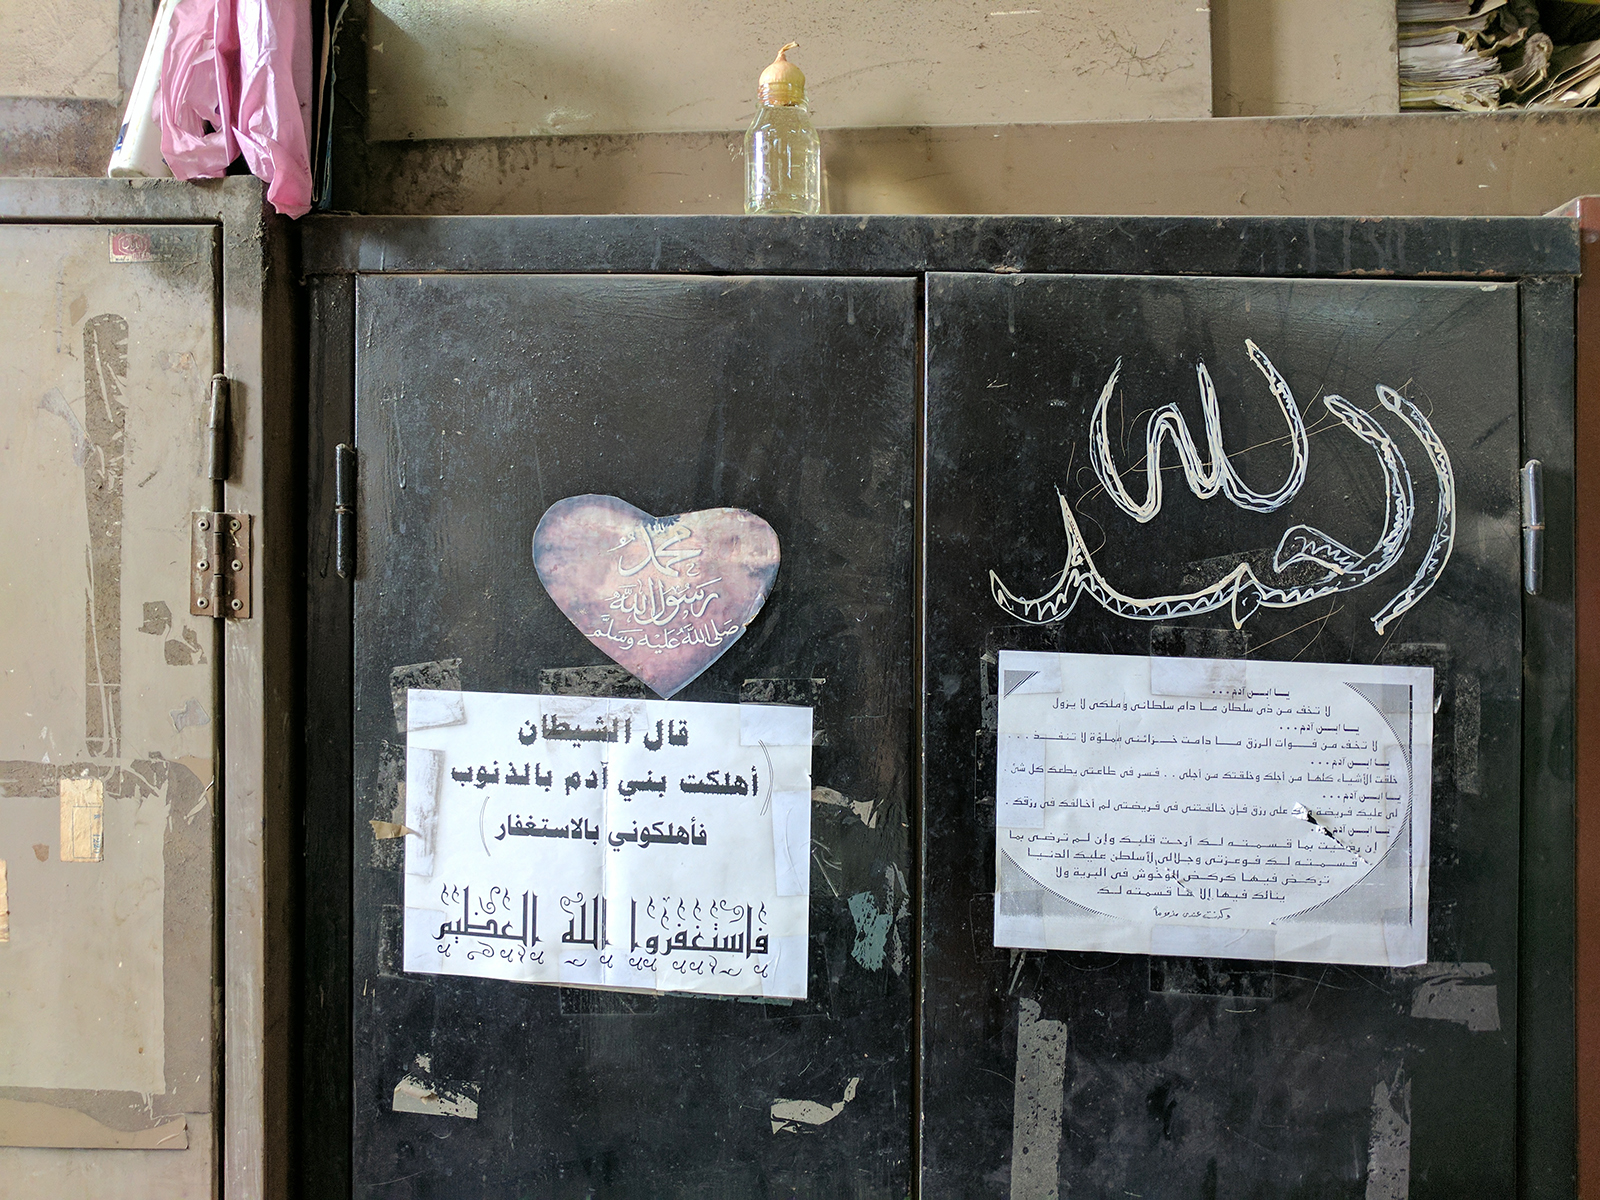 الحمد لله
محمد
رسول الله
صلى الله عليه وسلم
قال الشيطان
أهلكت بني آدم بالذنوب
فأهلكوني بالاستغفار
فاستغفروا الله العظيم
يا ابن آدم ...
لا تخف من ذي سلطان ما دام سلطاني وملكي لا يزول
يا ابن آدم ...
لا تخف من فوات الرزق ما دامت خزائني مملوة لا تنفذ ...
يا ابن آدم ...
خلقت الأشياء كلها من أجلك وخلقتك من أجلي .. فسر في طاعتي يطعك كل شئ .
يا ابن آدم ...
لي عليك فريضة على رزق فإن خالفتني في فريضتي لم أخالفك في رزقك .
يا ابن آدم ...
إن رضيت بما قسمته لك أرحت قلبك وإن لم ترضى بما
قسمته لك فوعزتي وجلالي لأسلطن عليك الدنيا
تركض فيها كركض الوحوش في البرية ولا
ينالك فيها إلا ما قسمته لك
وكنت عندي مذموما